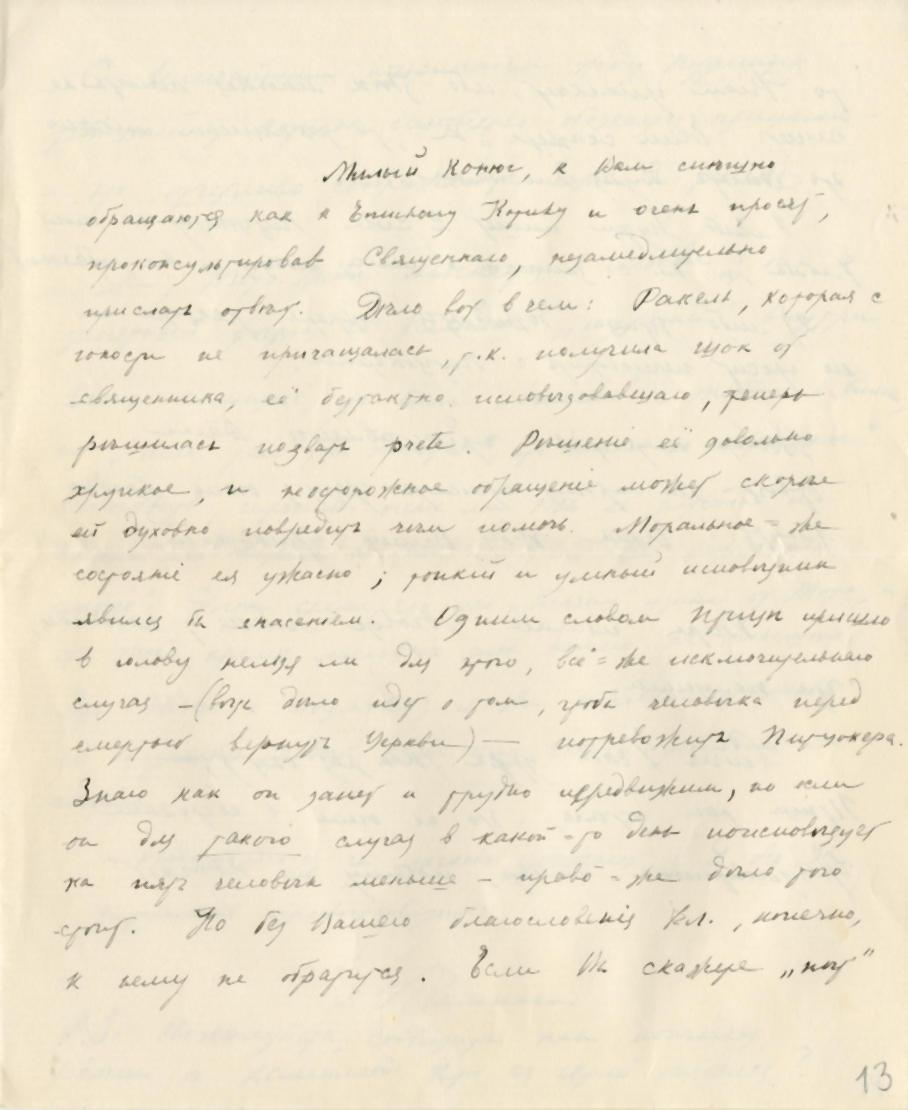 Милый Котюс, к Вам спѣшно
обращаются как к Епископу Клиши и очень просят,
проконсультировав Священнаго, незамедлительно
прислать отвѣт. Дѣло вот в чем: Ракель, которая с
юности не причащалась, т.к. получила шок от
священника, её безтактно исповѣдовавшаго, теперь
рѣшилась позвать prêtre. Рѣшеніе её довольно
хрупкое, и неосторожное обращеніе может скорѣе
ей духовно повредить чѣм помочь. Моральное-же
состояніе ея ужасно; тонкій и умный исповѣдник
явился бы спасеніем. Одним словом пришло
в голову нельзя ли для этого, всё-же исключительнаго
случая — (вѣдь дѣло идет о том, чтобы человѣка перед
смертью вернуть Церкви) — потревожить
Знаю как он занят и трудно передвижим, но если
он для такого случая в какой-то день поисповѣдует
на пять человѣк меньше — право-же дѣло того
стоит. Но без Вашего благословенія Кл., конечно,
к нему не обратится. Если Вы скажете „нѣт"
13